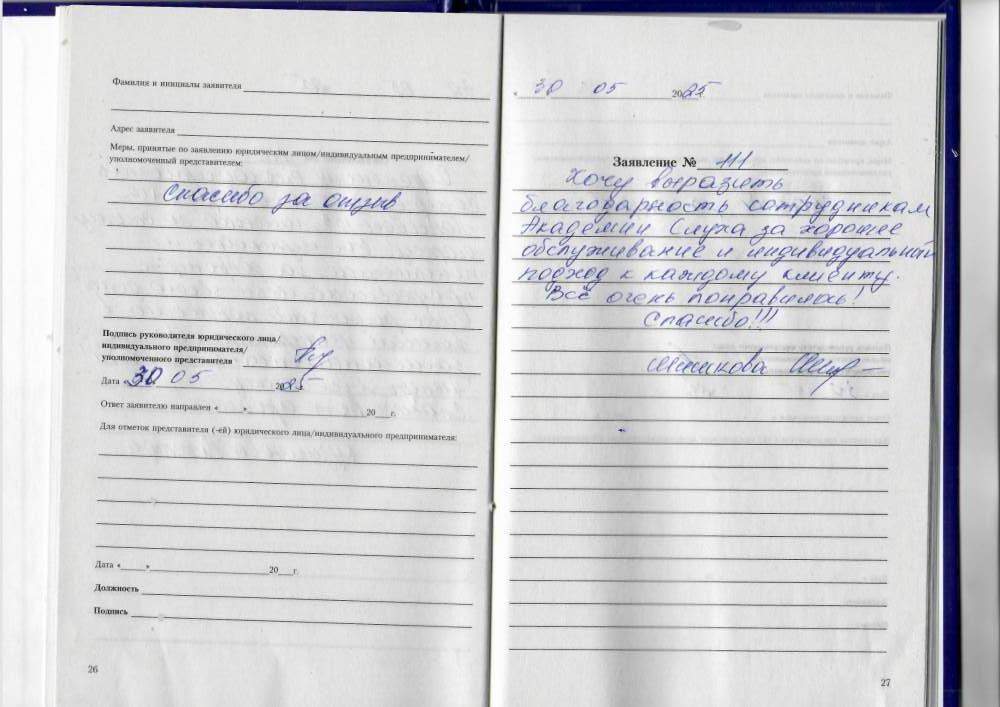 Фамилия и инициалы заявителя
Адрес заявителя
Меры, принятые по заявлению юридическим лицом/индивидуальным предпринимателем/
уполномоченный представителем:
Спасибо за отзыв
Подпись руководителя юридического лица/
индивидуального предпринимателя/
уполномоченного представителя
Дата «30 05 2025г.
Ответ заявителю направлен «____»____20__г.
Для отметок представителя (-ей) юридического лица/индивидуального предпринимателя:
Дата «____»____20__г.
Должность
Подпись
26
30 05 2025г.
Заявление № 111
Хочу выразить
благодарность сотрудникам
Академии Слуха за хорошее
обслуживание и индивидуальный
подход к каждому клиенту.
Всё очень понравилось!
Спасибо!!!
27